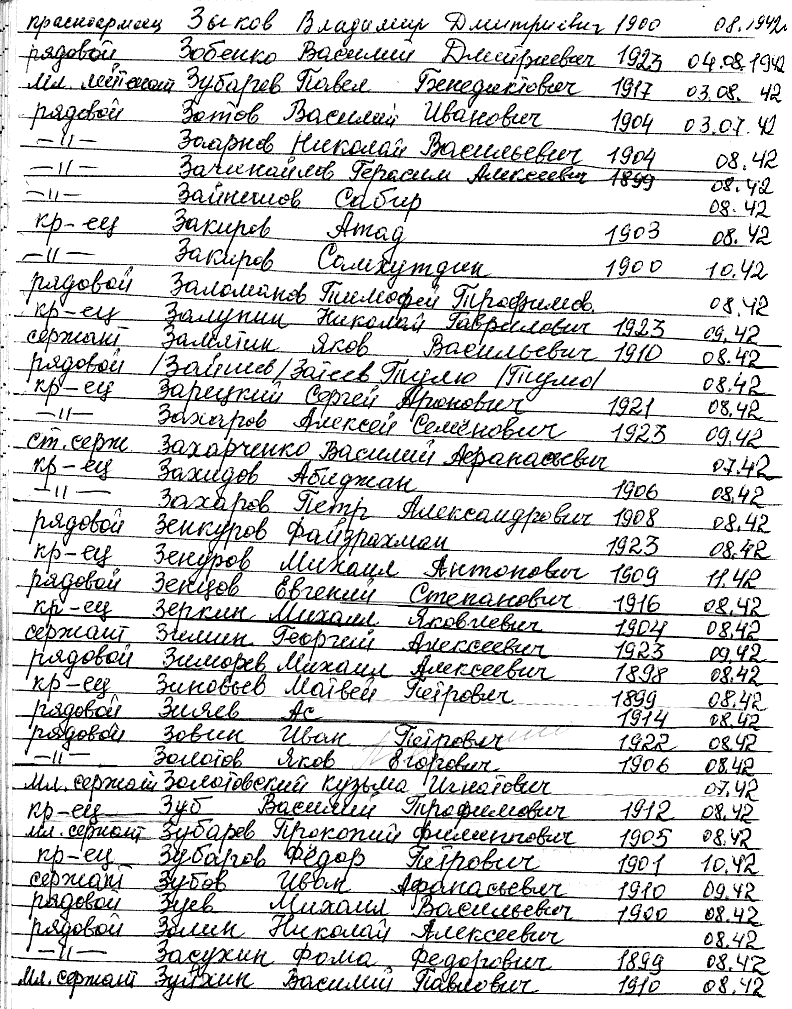 красноармеец Зыков Владимир Дмитриевич 1900 08.1942
рядовой Зобенко Василий Дмитриевич 1923 04.08.1942
мл. лейтенант Зубарев Павел Бенедиктович 1917 03.08. 42
рядовой Зотов Василий Иванович 1904 03.07.42
—//— Николай Васильевич 1904 08.42
—//— Герасим Алексеевич 1899 08.42
—//— Сабир 08.42
кр-ец Закиров Атад 1903 08.42
—//— Закиров Салихутдин 1900 10.42
рядовой Заломанов Тимофей Трофимов. 08.42
кр-ец Залупин Николай Гаврилович 1923 09.42
сержант Замятин Яков Васильевич 1910 08.42
рядовой /Зайтиев/ Затеев Тулю /Тулю/ 08.42
кр-ец Зарецкий Сергей Аронович 1921 08.42
—//— Захаров Алексей Семёнович 1923 09.42
ст. серж. Захарченко Василий Афанасьевич 07.42
кр-ец Захидов Абиджан 1906 08.42
—//— Захаров Петр Александрович 1908 08.42
рядовой Зенкуров Файзрахман 1923 08.42
кр-ец Зенуров Михаил Антонович 1909 11.42
рядовой Зенцов Евгений Степанович 1916 08.42
кр-ец Зеркин Михаил Яковлевич 1904 08.42
сержант Зимин Георгий Алексеевич 1923 09.42
рядовой Зиморев Михаил Алексеевич 1898 08.42
кр-ец Зиновьев Матвей Петрович 1899 08.42
рядовой Зияев Ас 1914 08.42
рядовой Зовин Иван Петрович 1922 08.42
—//— Золотов Яков Егорович 1906 08.42
мл. сержант Золотовский Кузьма Игнатович 07.42
кр-ец Зуб Василий Трофимович 1912 08.42
мл. сержант Зубарев Прокопий Филиппович 1905 08.42
кр-ец Зубаров Фёдор Петрович 1901 10.42
сержант Зубов Иван Афанасьевич 1910 09.42
рядовой Зуев Михаил Васильевич 1900 08.42
рядовой Золин Николай Алексеевич 08.42
—//— Засухин Фома Федорович 1899 08.42
мл. сержант Зуйхин Василий Павлович 1910 08.42